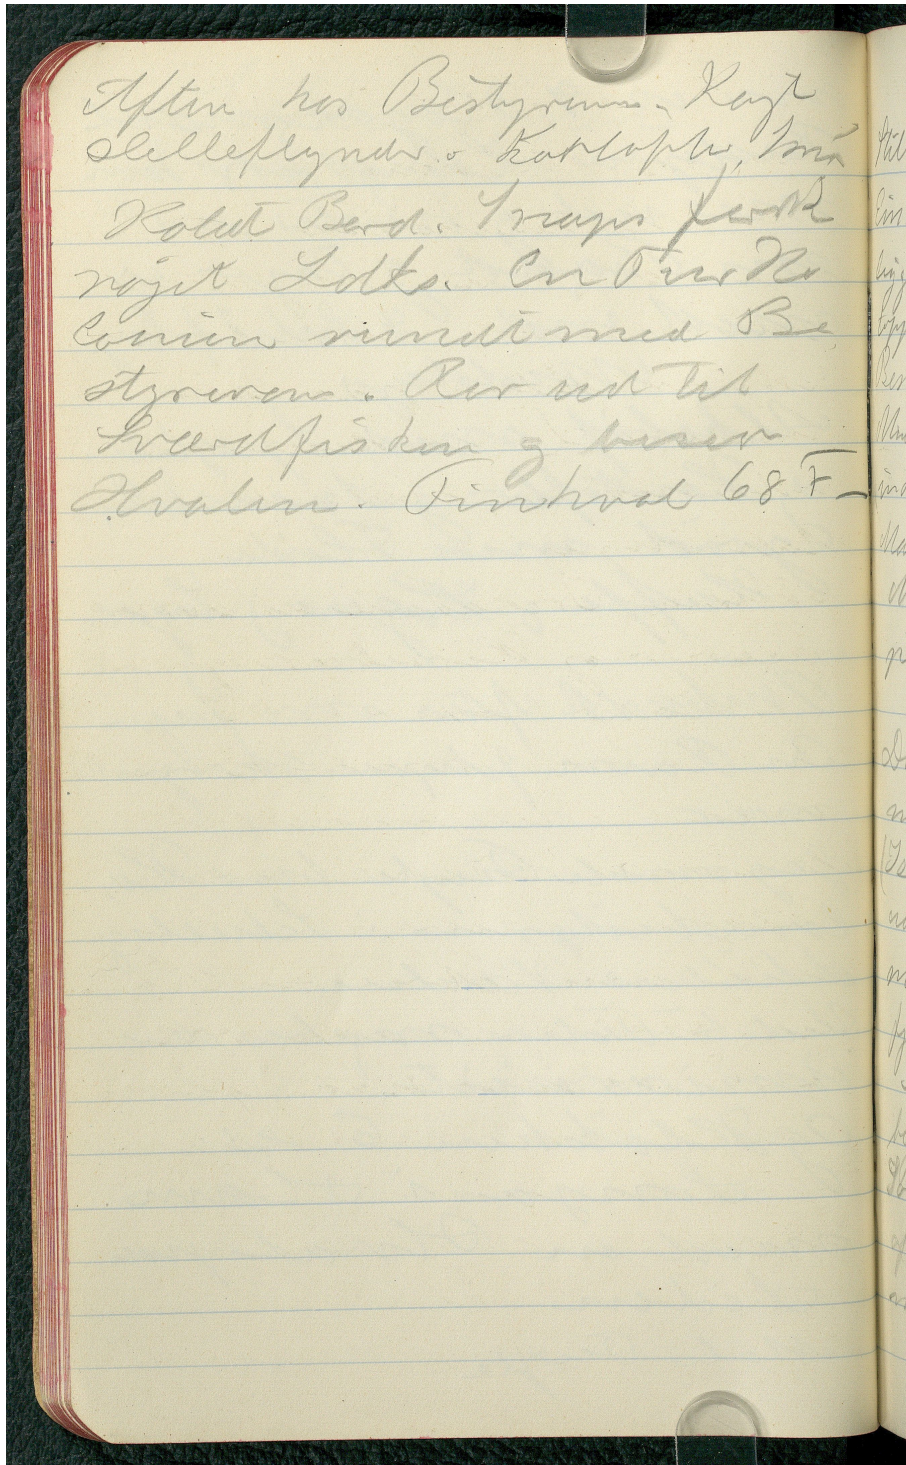 Aften hos Bestyreren. Kogt
Helleflynder o Kartofler, Små
Koldt Bord. Snaps fersk
røget Laks. En Tur Ko
lonien rundt med Be
styreren. Ror ud til
Sværdfisken og beser
Hvalen. Finhval 68 F